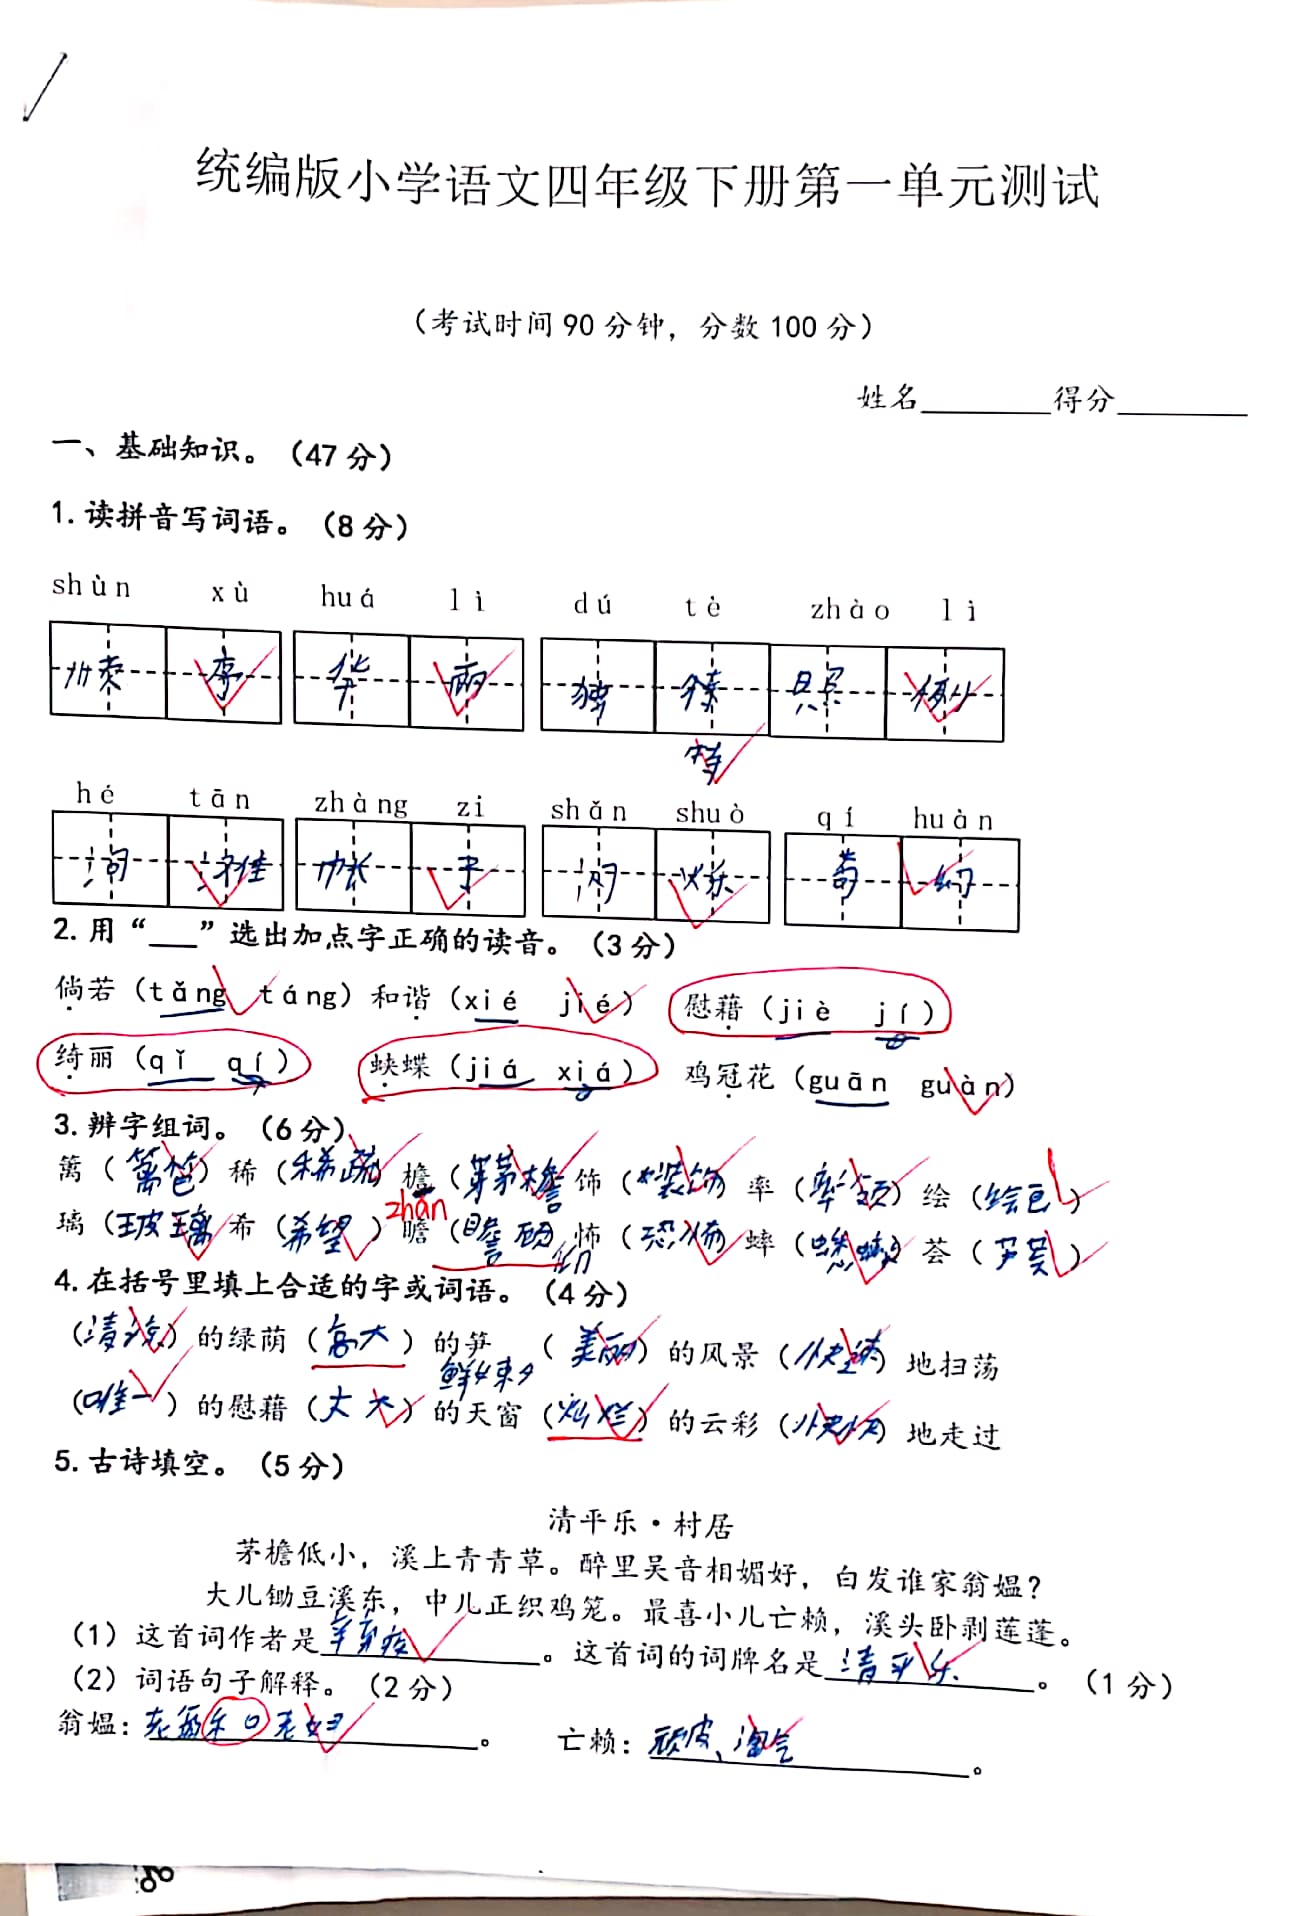 统编版小学语文四年级下册第一单元测试
（考试时间 90 分钟，分数 100 分）
姓名________得分________
一、基础知识。（47 分）
1. 读拼音写词语。（8 分）
shùn xù huá lì dú tè zhào lì
序 华 丽 独 照
特
hé tān zhàng zi shǎn shuò qí huàn
河 滩 帐 子 闪 烁 奇 幻
2. 用“___”选出加点字正确的读音。（3 分）
倘若（tǎng táng）和谐（xié jié） 慰藉（jiè jí）
绮丽（qǐ qí） 蛱蝶（jiá xiá） 鸡冠花（guān guàn）
3. 辨字组词。（6 分）
篱（篱笆）稀（稀疏）檐（茅檐）饰（装饰）率（率领）绘（绘画）
zhān
璃（玻璃）希（希望）瞻（瞻）怖（恐怖）蟀（蟋蟀）荟（）
4. 在括号里填上合适的字或词语。（4 分）
（清凉）的绿荫（高大）的笋 （美丽）的风景（快速）地扫荡
鲜嫩
（唯一）的慰藉（大大）的天窗（灿烂）的云彩（）地走过
5. 古诗填空。（5 分）
清平乐·村居
茅檐低小，溪上青青草。醉里吴音相媚好，白发谁家翁媪？
大儿锄豆溪东，中儿正织鸡笼。最喜小儿亡赖，溪头卧剥莲蓬。
（1）这首词作者是辛弃疾。这首词的词牌名是清平乐。（1 分）
（2）词语句子解释。（2 分）
翁媪：老翁和老妇。 亡赖：顽皮、淘气。